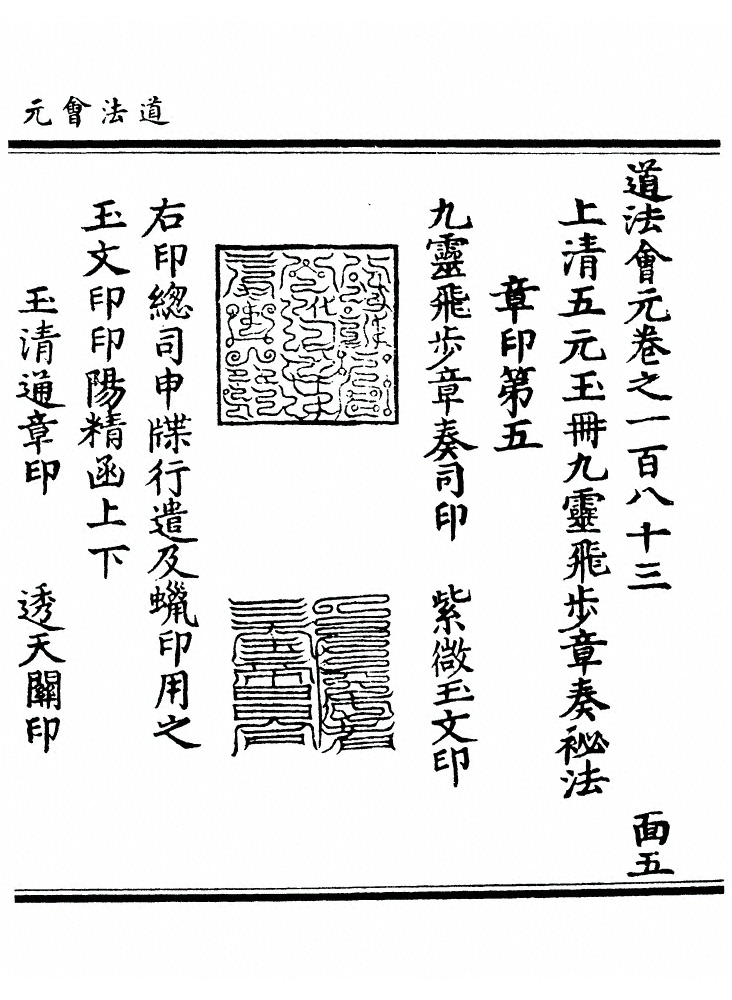 道法會元
道法會元卷之一百八十三 面五
上清五元玉冊九靈飛步章奏秘法
章印第五
九靈飛步章奏司印 紫微玉文印
右印總司申牒行遣及蠟印用之
玉文印印陽精函上下
玉清通章印 透天關印